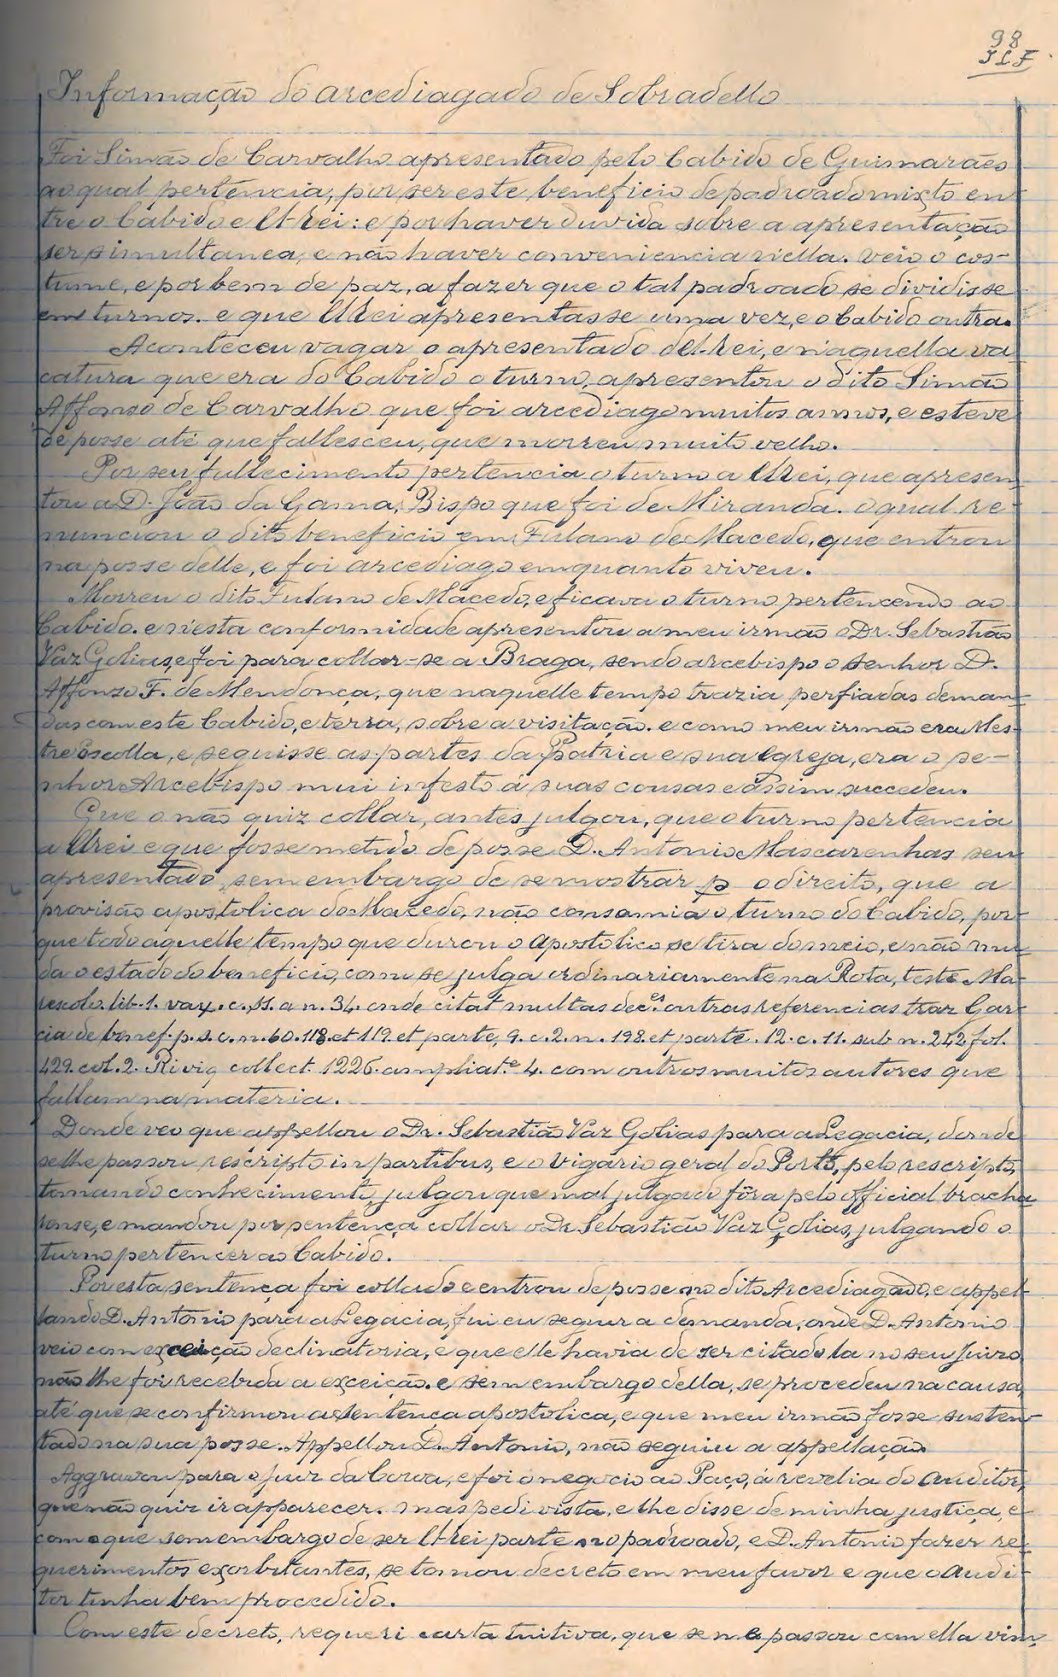 98
J L F
Informação do arcediagado de Sobradello
Foi Simão de Carvalho apresentado pelo Cabido de Guimarães
ao qual pertencia, por ser este beneficio de padroado mixto en-
tre o Cabido e El-rei: e por haver duvida sobre a apresentação
ser simultanea, e não haver conveniencia n'ella. veio o cos-
tume, e por bem de paz, a fazer que o tal padroado se dividisse
em turnos. e que El rei apresentasse uma vez, e o Cabido outra.
Aconteceu vagar o apresentado del-rei, e n'aquella va
catura que era do Cabido o turno, apresentou o dito Simão
Affonso de Carvalho que foi arcediago muitos annos, e esteve
de posse até que fallesceu, que morreu muito velho.
Por seu fallecimento pertencia o turno a El rei, que apresen-
tou a D. João da Gama, Bispo que foi de Miranda. o qual re-
nunciou o dito beneficio em Fulano de Macedo, que entrou
na posse delle, e foi arcediago emquanto viveu.
Morreu o dito Fulano de Macedo, e ficava o turno pertencendo ao
Cabido. e n'esta conformidade apresentou a meu irmão o Dr. Sebastião
Vaz Golias, e foi para collar-se a Braga, sendo arcebispo o senhor D.
Affonso F. de Mendonça, que naquelle tempo trazia perfiadas deman-
das com este Cabido, e terra, sobre a visitação. e como meu irmão era Mes-
tre Escolla, e seguisse as partes da Patria e sua Egreja, era o se-
nhor Arcebispo mui infesto á suas cousas e assim succedeu.
Que o não quiz collar, antes julgou, que o turno pertencia
a El rei e que fosse metido de posse D. Antonio Mascarenhas seu
apresentado, sem embargo de se mostrar p o direito, que a
provisão apostolica do Macedo, não consumia o turno do Cabido, por-
que todo aquelle tempo que durou o apostolico se tira do meio, e não mu
da o estado do beneficio, como se julga ordinariamente na Rota, teste Ma-
rescolo. lib. 1. var. c. 11. a n. 34. onde citat multas dec.es outras referencias traz Gar-
cia de benef. p. 5. c. n. 60. 118. et 119. et parte, 9. c. 2. n. 198. et parte. 12. c. 11. sub n. 242 fol.
429. col. 2. collect. 1226. ampliat.e 4. com outros muitos autores que
fallam na materia.
Donde veo que appellou o Dr. Sebastião Vaz Golias para a Legacia, donde
se lhe passou rescripto in partibus, e o Vigario geral do Porto, pelo rescripto,
tomando conhecimento, julgou que mal julgado fôra pelo official bracha
rense, e mandou por sentença collar o Dr. Sebastião Vaz Golias, julgando o
turno pertencer ao Cabido.
Por esta sentença foi collado e entrou de posse no dito Arcediagado, e appel-
lando D. Antonio para a Legacia, fui eu seguir a demanda, onde D. Antonio
veio com exceição declinatoria, e que elle havia de ser citado la no seu Juizo,
não lhe foi recebida a exceição. e sem embargo della, se procedeu na causa,
até que se confirmou a sentença apostolica, e que meu irmão fosse susten-
tado na sua posse. Appellou D. Antonio, não seguiu a appellação.
Aggravou para o juiz da Coroa, e foi o negocio ao Paço, á revelia do auditor,
que não quiz ir apparecer. mas pedi vista, e lhe disse de minha justiça, e
como que sem embargo de ser El-rei parte no padroado, e D. Antonio fazer re-
querimentos exorbitantes, se tomou decreto em meu favor e que o audi-
tor tinha bem procedido.
Com este decreto, requeri carta tuitiva, que se me passou com ella vim,